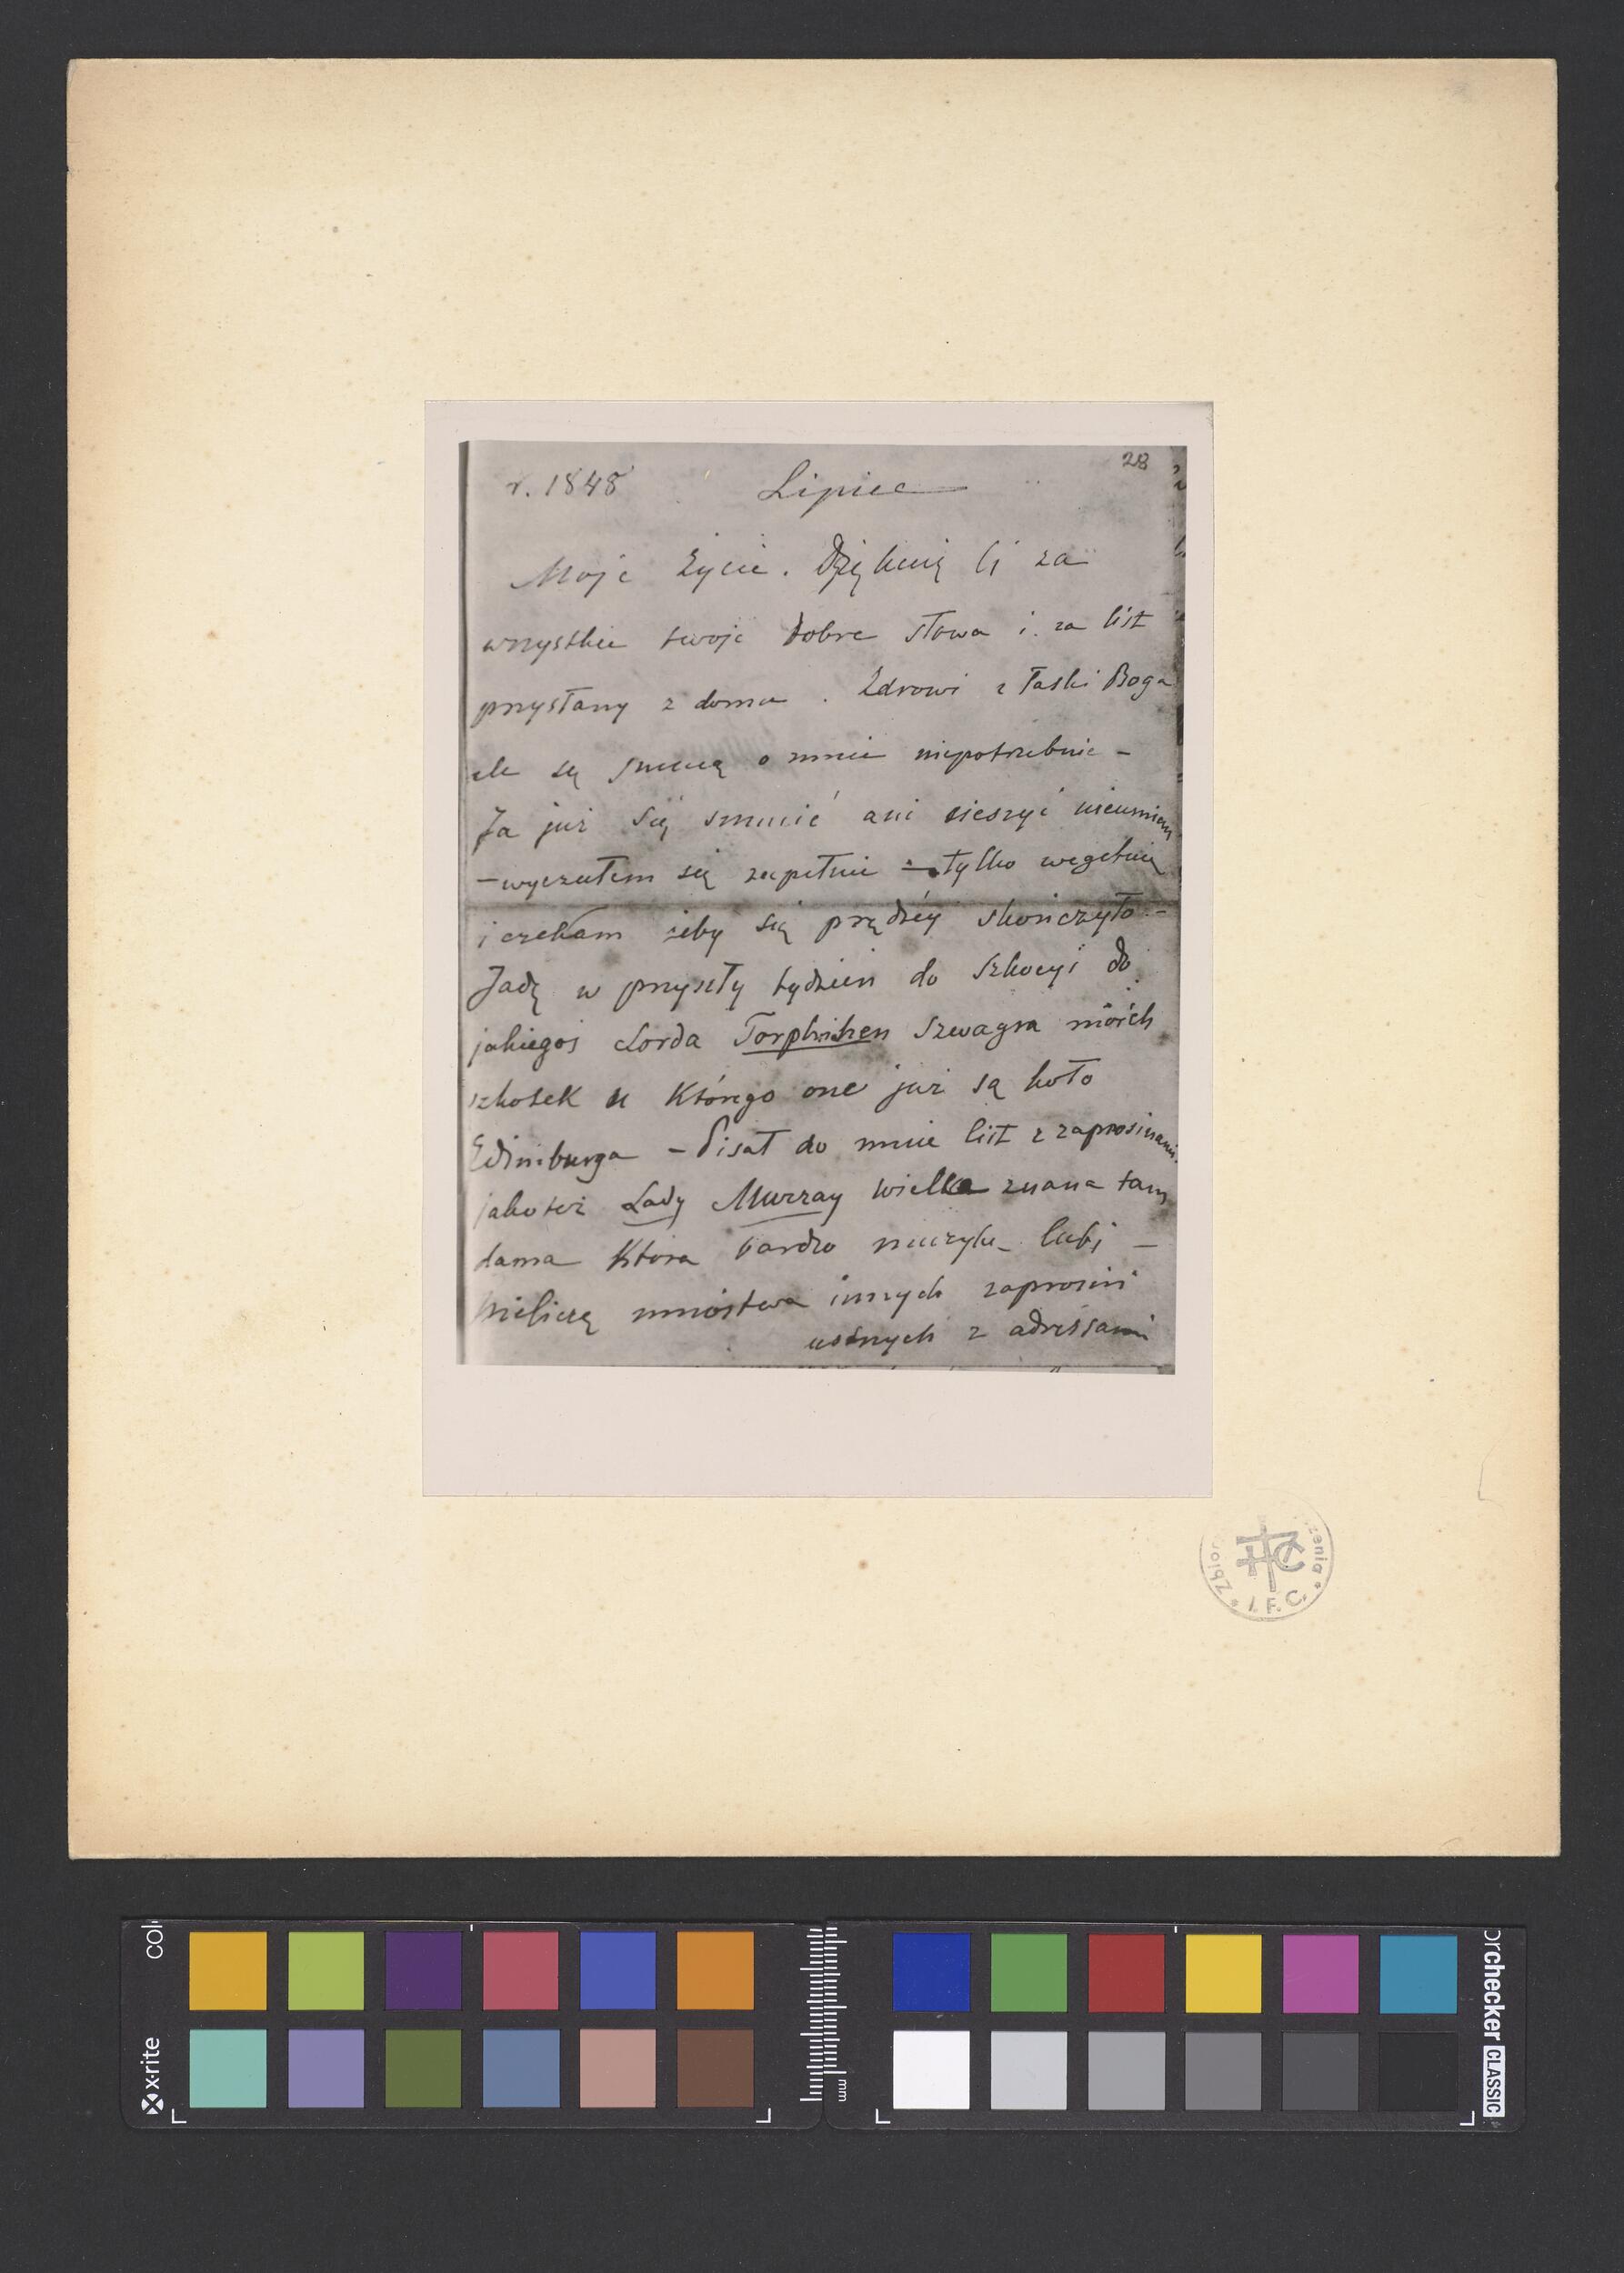 28
r. 1848 Lipiec
Moje Życie. Dziękuię Ci za
wszystkie twoje dobre słowa i za list
przysłany z domu. Zdrowi z łaski Boga
ale się smucą o mnie niepotrzebnie –
Ja już się smucić ani cieszyć nieumiem
– wyczułem się zupełnie – tylko wegetuię
i czekam żeby się prędzéj skończyło –
Jadę w przyszły tydzień do Szkocyi do
jakiegoś Lorda Torphichen szwagra moich
szkotek u którego one już są koło
Edimburga – Pisał do mnie list z zaprosinami
jako też Lady Murray wielka znana tam
dama która bardzo muzykę lubi –
Nieliczę mnóstwa innych zaprosin
ustnych z adressami
Zbior zenia * I. F. C. *
x-rite
mm
colorchecker CLASSIC